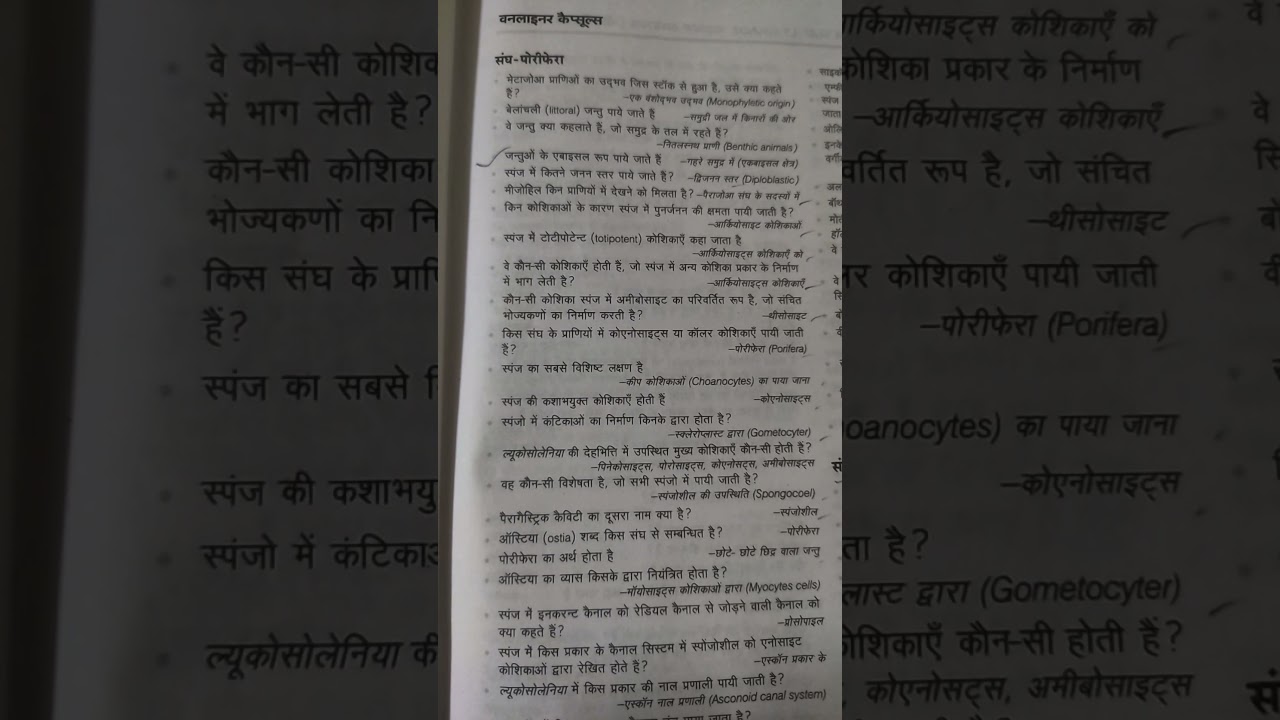 वनलाइनर कैप्सूल्स
संघ-पोरीफेरा
मेटाजोआ प्राणिओं का उद्भव जिस स्टॉक से हुआ है, उसे क्या कहते
हैं? –एक वंशोद्भव उद्भव (Monophyletic origin)
बेलांचली (littoral) जन्तु पाये जाते हैं –समुद्री जल में किनारों की ओर
वे जन्तु क्या कहलाते हैं, जो समुद्र के तल में रहते हैं?
–नितलस्नथ प्राणी (Benthic animals)
जन्तुओं के एबाइसल रूप पाये जाते हैं –गहरे समुद्र में (एकबाइसल क्षेत्र)
स्पंज में कितने जनन स्तर पाये जाते हैं? –द्विजनन स्तर (Diploblastic)
मीजोहिल किन प्राणियों में देखने को मिलता है? –पैराजोआ संघ के सदस्यों में
किन कोशिकाओं के कारण स्पंज में पुनर्जनन की क्षमता पायी जाती है?
–आर्कियोसाइट कोशिकाओं
स्पंज में टोटीपोटेन्ट (totipotent) कोशिकाएँ कहा जाता है
–आर्कियोसाइट्स कोशिकाएँ को
वे कौन-सी कोशिकाएँ होती हैं, जो स्पंज में अन्य कोशिका प्रकार के निर्माण
में भाग लेती है? –आर्कियोसाइट्स कोशिकाएँ
कौन-सी कोशिका स्पंज में अमीबोसाइट का परिवर्तित रूप है, जो संचित
भोज्यकणों का निर्माण करती है? –थीसोसाइट
किस संघ के प्राणियों में कोएनोसाइट्स या कॉलर कोशिकाएँ पायी जाती
हैं? –पोरीफेरा (Porifera)
स्पंज का सबसे विशिष्ट लक्षण है
–कीप कोशिकाओं (Choanocytes) का पाया जाना
स्पंज की कशाभयुक्त कोशिकाएँ होती हैं –कोएनोसाइट्स
स्पंजो में कंटिकाओं का निर्माण किनके द्वारा होता है?
–स्क्लेरोप्लास्ट द्वारा (Gometocyter)
ल्यूकोसोलेनिया की देहभित्ति में उपस्थित मुख्य कोशिकाएँ कौन-सी होती हैं?
–पिनेकोसाइट्स, पोरोसाइट्स, कोएनोसट्स, अमीबोसाइट्स
वह कौन-सी विशेषता है, जो सभी स्पंजो में पायी जाती है?
–स्पंजोशील की उपस्थिति (Spongocoel)
पैरागैस्ट्रिक कैविटी का दूसरा नाम क्या है? –स्पंजोशील
ऑस्टिया (ostia) शब्द किस संघ से सम्बन्धित है? –पोरीफेरा
पोरीफेरा का अर्थ होता है –छोटे- छोटे छिद्र वाला जन्तु
ऑस्टिया का व्यास किसके द्वारा नियंत्रित होता है?
–मॉयोसाइट्स कोशिकाओं द्वारा (Myocytes cells)
स्पंज में इनकरन्ट कैनाल को रेडियल कैनाल से जोड़ने वाली कैनाल को
क्या कहते हैं? –प्रोसोपाइल
स्पंज में किस प्रकार के कैनाल सिस्टम में स्पोंजोशील को एनोसाइट
कोशिकाओं द्वारा रेखित होते हैं? –एस्कॉन प्रकार के
ल्यूकोसोलेनिया में किस प्रकार की नाल प्रणाली पायी जाती है?
–एस्कॉन नाल प्रणाली (Asconoid canal system)